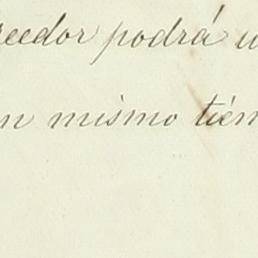 reedor podrá u
n mismo tiém